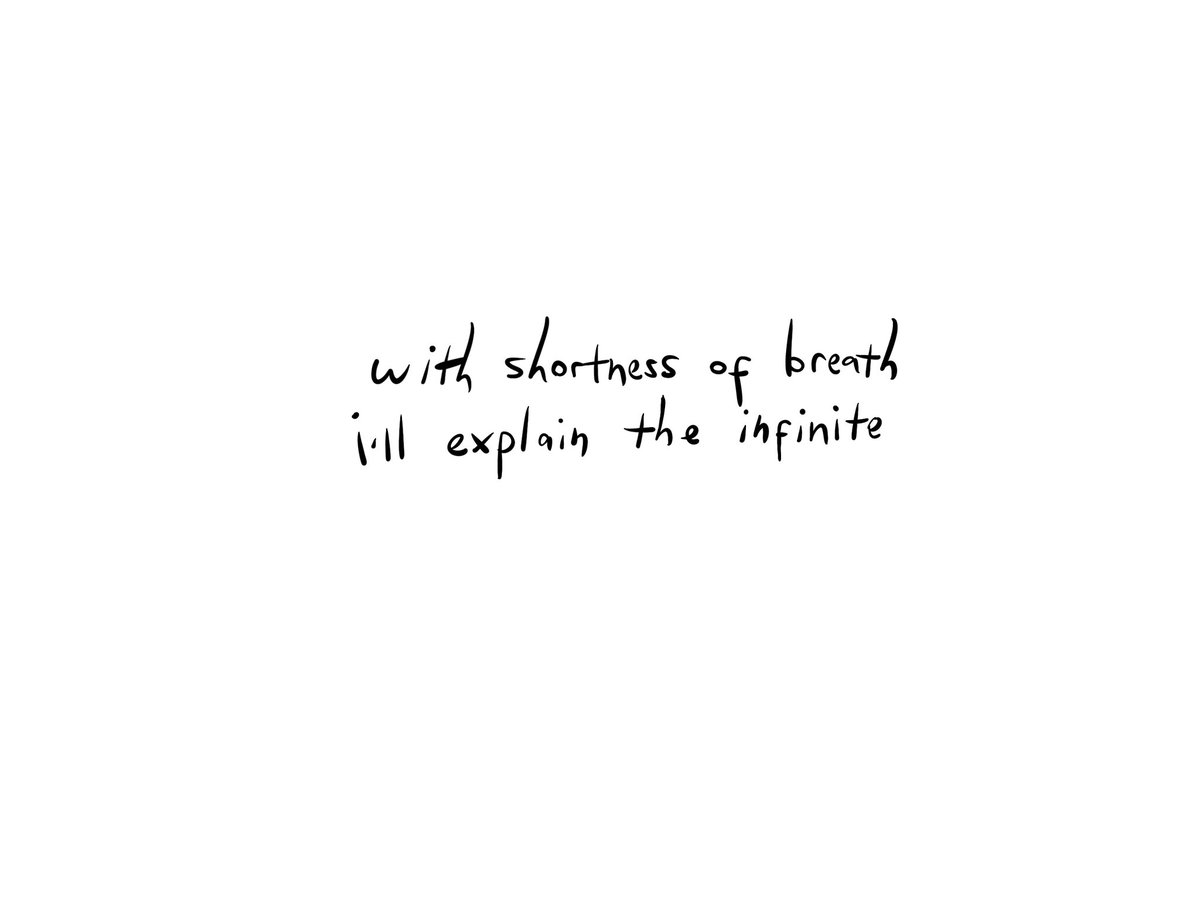 with shortness of breath
i'll explain the infinite